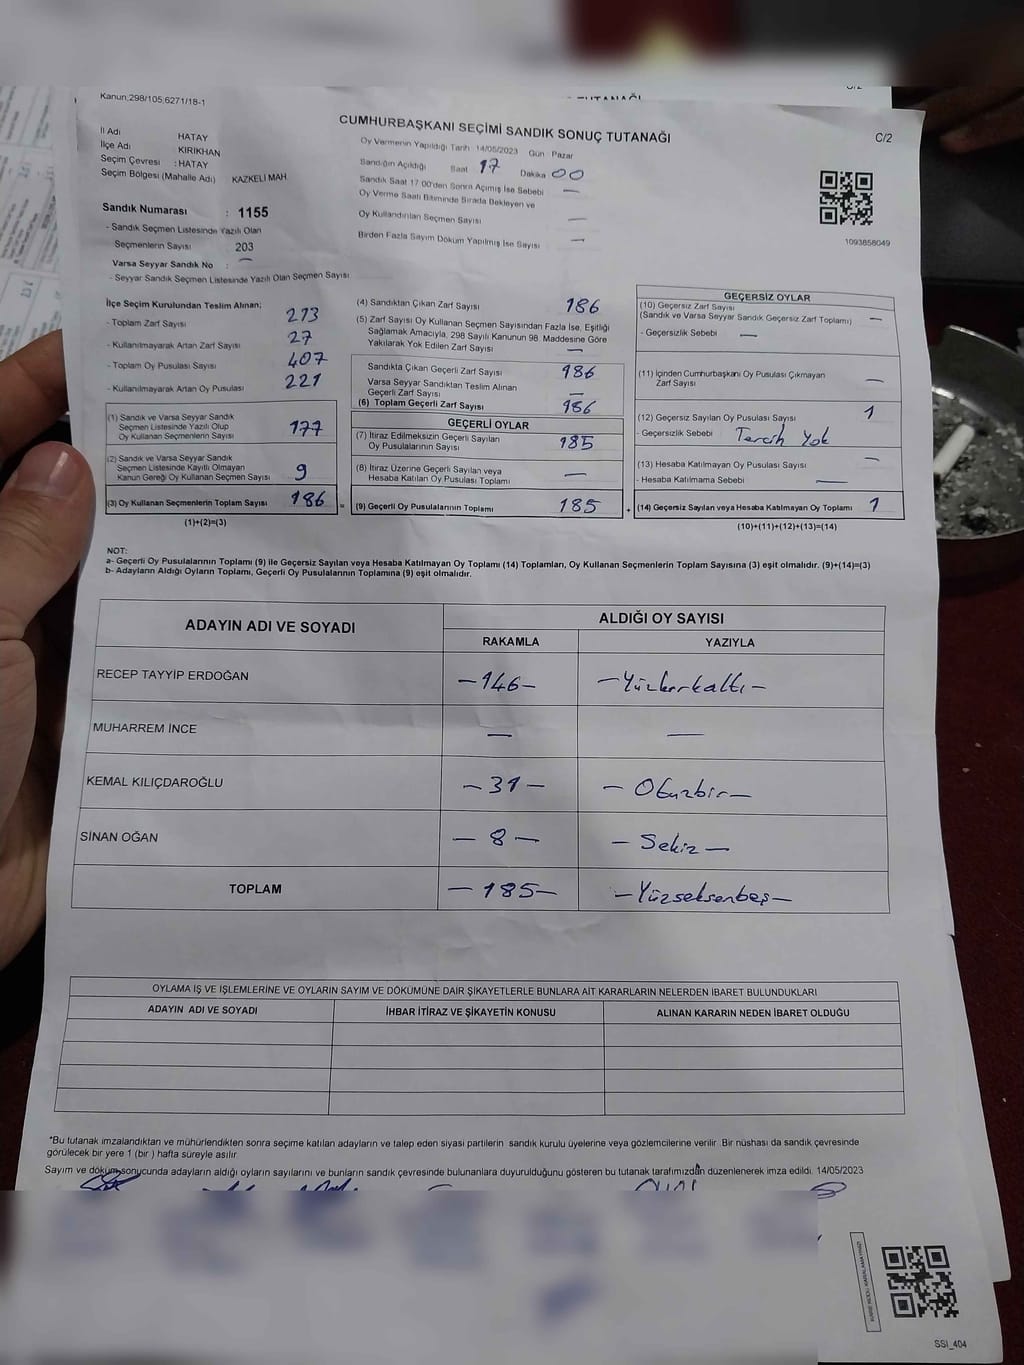 Kanun;298/105;6271/18-1
CUMHURBAŞKANI SEÇİMİ SANDIK SONUÇ TUTANAĞI
C/2
İl Adı HATAY
İlçe Adı KIRIKHAN
Seçim Çevresi : HATAY
Seçim Bölgesi (Mahalle Adı) KAZKELİ MAH.
Oy Vermenin Yapıldığı Tarih 14/05/2023 Gün Pazar
Sandığın Açıldığı Saat 17 Dakika 00
Sandık Saat 17:00'den Sonra Açılmış İse Sebebi —
Oy Verme Saati Bitiminde Sırada Bekleyen ve
Oy Kullandırılan Seçmen Sayısı —
Birden Fazla Sayım Döküm Yapılmış İse Sayısı —
1093858049
Sandık Numarası : 1155
- Sandık Seçmen Listesinde Yazılı Olan
Seçmenlerin Sayısı 203
Varsa Seyyar Sandık No : —
- Seyyar Sandık Seçmen Listesinde Yazılı Olan Seçmen Sayısı
İlçe Seçim Kurulundan Teslim Alınan;
- Toplam Zarf Sayısı 213
- Kullanılmayarak Artan Zarf Sayısı 27
- Toplam Oy Pusulası Sayısı 407
- Kullanılmayarak Artan Oy Pusulası 221
(1) Sandık ve Varsa Seyyar Sandık
Seçmen Listesinde Yazılı Olup
Oy Kullanan Seçmenlerin Sayısı 177
(2) Sandık ve Varsa Seyyar Sandık
Seçmen Listesinde Kayıtlı Olmayan
Kanun Gereği Oy Kullanan Seçmen Sayısı 9
(3) Oy Kullanan Seçmenlerin Toplam Sayısı 186 =
(1)+(2)=(3)
(4) Sandıktan Çıkan Zarf Sayısı 186
(5) Zarf Sayısı Oy Kullanan Seçmen Sayısından Fazla İse, Eşitliği
Sağlamak Amacıyla, 298 Sayılı Kanunun 98. Maddesine Göre
Yakılarak Yok Edilen Zarf Sayısı —
Sandıkta Çıkan Geçerli Zarf Sayısı 186
Varsa Seyyar Sandıktan Teslim Alınan
Geçerli Zarf Sayısı —
(6) Toplam Geçerli Zarf Sayısı 186
GEÇERLİ OYLAR
(7) İtiraz Edilmeksizin Geçerli Sayılan
Oy Pusulalarının Sayısı 185
(8) İtiraz Üzerine Geçerli Sayılan veya
Hesaba Katılan Oy Pusulası Toplamı —
(9) Geçerli Oy Pusulalarının Toplamı 185 +
GEÇERSİZ OYLAR
(10) Geçersiz Zarf Sayısı
(Sandık ve Varsa Seyyar Sandık Geçersiz Zarf Toplamı) —
- Geçersizlik Sebebi —
(11) İçinden Cumhurbaşkanı Oy Pusulası Çıkmayan
Zarf Sayısı —
(12) Geçersiz Sayılan Oy Pusulası Sayısı 1
- Geçersizlik Sebebi Tercih Yok
(13) Hesaba Katılmayan Oy Pusulası Sayısı —
- Hesaba Katılmama Sebebi —
(14) Geçersiz Sayılan veya Hesaba Katılmayan Oy Toplamı 1
(10)+(11)+(12)+(13)=(14)
NOT:
a- Geçerli Oy Pusulalarının Toplamı (9) ile Geçersiz Sayılan veya Hesaba Katılmayan Oy Toplamı (14) Toplamları, Oy Kullanan Seçmenlerin Toplam Sayısına (3) eşit olmalıdır. (9)+(14)=(3)
b- Adayların Aldığı Oyların Toplamı, Geçerli Oy Pusulalarının Toplamına (9) eşit olmalıdır.
ADAYIN ADI VE SOYADI ALDIĞI OY SAYISI
RAKAMLA YAZIYLA
RECEP TAYYİP ERDOĞAN —146— —Yüzkırkaltı—
MUHARREM İNCE — —
KEMAL KILIÇDAROĞLU —31— —Otuzbir—
SİNAN OĞAN —8— —Sekiz—
TOPLAM —185— —Yüzseksenbeş—
OYLAMA İŞ VE İŞLEMLERİNE VE OYLARIN SAYIM VE DÖKÜMÜNE DAİR ŞİKAYETLERLE BUNLARA AİT KARARLARIN NELERDEN İBARET BULUNDUKLARI
ADAYIN ADI VE SOYADI İHBAR İTİRAZ VE ŞİKAYETİN KONUSU ALINAN KARARIN NEDEN İBARET OLDUĞU
*Bu tutanak imzalandıktan ve mühürlendikten sonra seçime katılan adayların ve talep eden siyasi partilerin sandık kurulu üyelerine veya gözlemcilerine verilir. Bir nüshası da sandık çevresinde
görülecek bir yere 1 (bir ) hafta süreyle asılır.
Sayım ve döküm sonucunda adayların aldığı oyların sayılarını ve bunların sandık çevresinde bulunanlara duyurulduğunu gösteren bu tutanak tarafımızdan düzenlenerek imza edildi. 14/05/2023
KARE KODU KARALAMAYINIZ!
SSİ_404